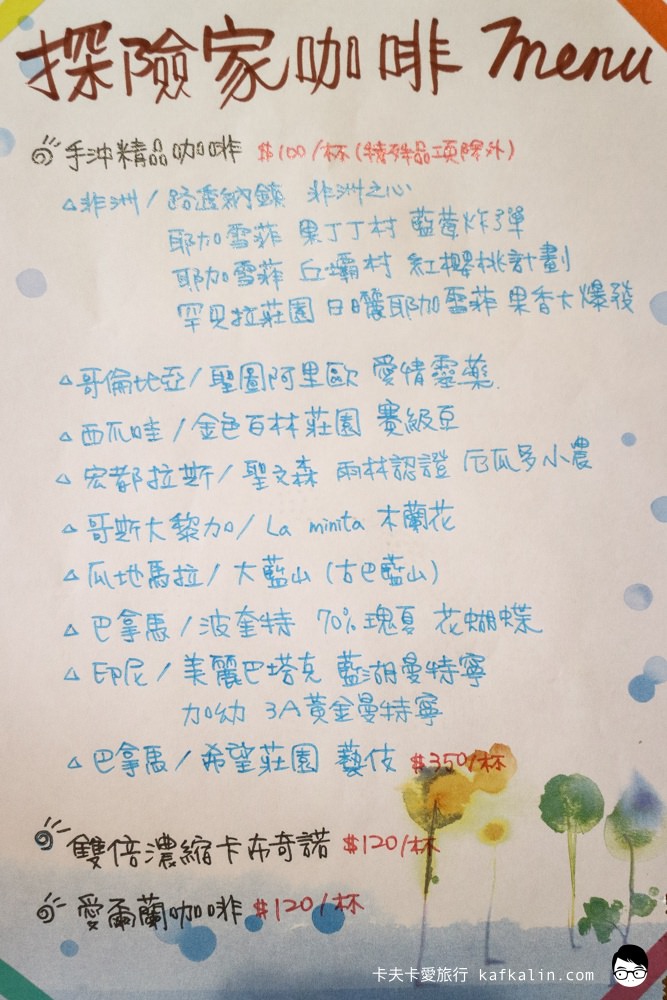 探險家咖啡 Menu
手沖精品咖啡 $100/杯(特殊品項除外)
△非洲/路透納鎮 非洲之心
耶加雪菲 果丁丁村 藍莓炸彈
耶加雪菲 丘壩村 紅櫻桃計劃
罕貝拉莊園 日曬耶加雪菲 果香大爆發
△哥倫比亞/聖圖阿里歐 愛情靈藥
△西爪哇/金色百林莊園 賽級豆
△宏都拉斯/聖文森 雨林認證 厄瓜多小農
△哥斯大黎加/La minita 木蘭花
△瓜地馬拉/大藍山(古巴藍山)
△巴拿馬/波奎特 70%瑰夏 花蝴蝶
△印尼/美麗巴塔克 藍湖曼特寧
加幼 3A黃金曼特寧
△巴拿馬/希望莊園 藝伎 $350/杯
雙倍濃縮卡布奇諾 $120/杯
愛爾蘭咖啡 $120/杯
卡夫卡愛旅行 kafkalin.com